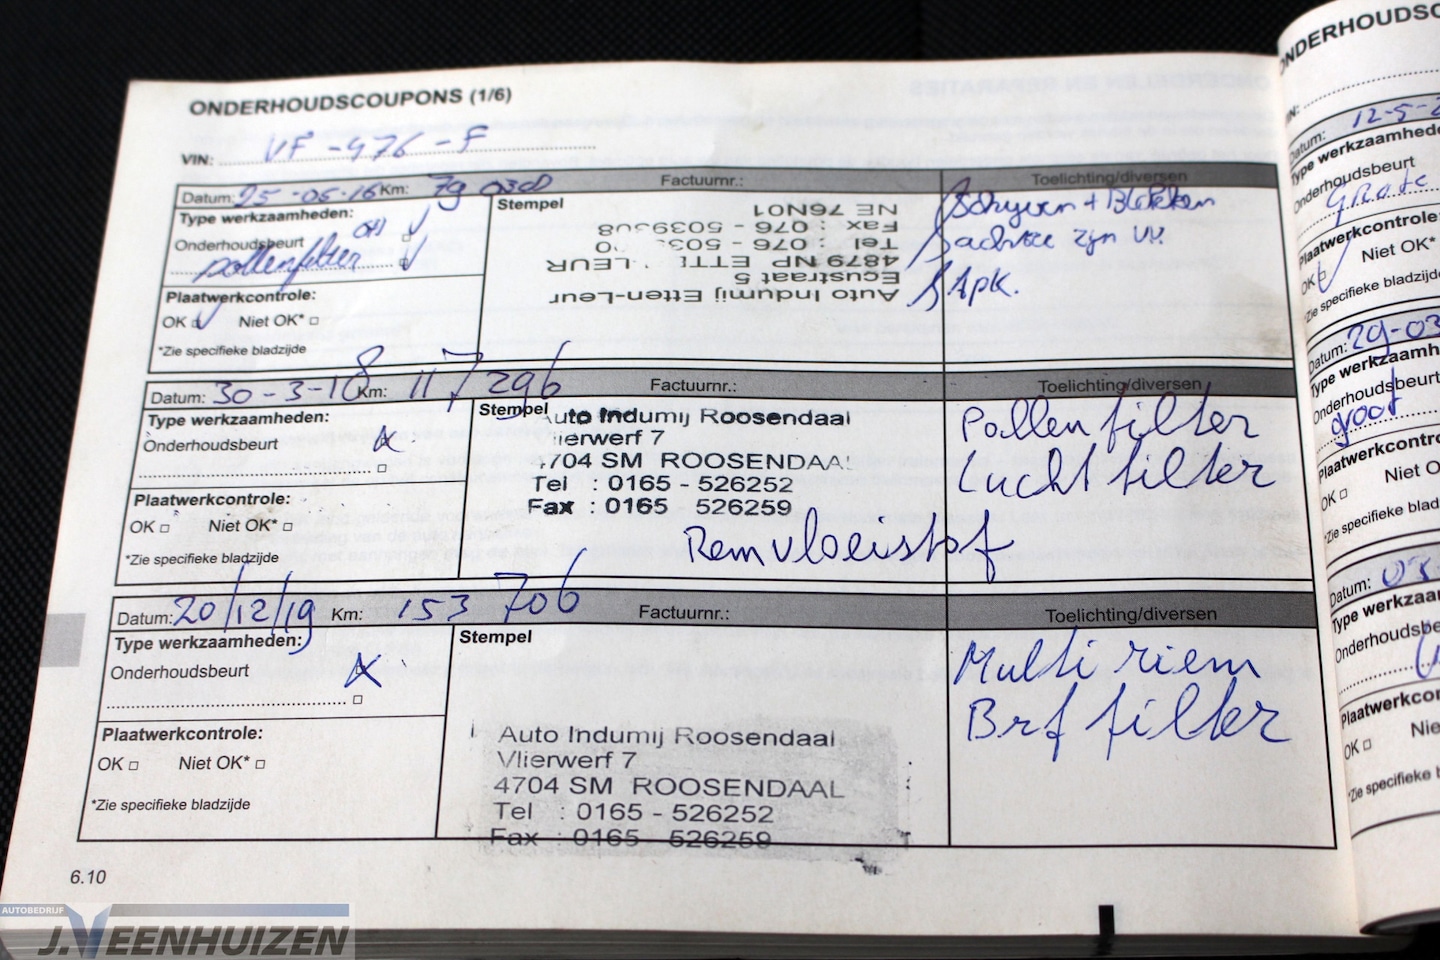 ONDERHOUDSCOUPONS (1/6)
VIN: VF-976-F
Datum: 25-05-16 Km: Factuurnr.: Toelichting/diversen
Type werkzaamheden:
Onderhoudsbeurt
pollenfilter
Plaatwerkcontrole:
OK Niet OK*
*Zie specifieke bladzijde
Stempel
Auto Indumij Etten-Leur
Ecustraat 5
4879 NP LEUR
Tel : 076 -
Fax : 076 -
NE 76N01
+ Blokken
achter zijn
Apk.
Datum: 30-3-18 Km: 117296 Factuurnr.: Toelichting/diversen
Type werkzaamheden:
Onderhoudsbeurt
Plaatwerkcontrole:
OK Niet OK*
*Zie specifieke bladzijde
Stempel
Auto Indumij Roosendaal
Vlierwerf 7
4704 SM ROOSENDAAL
Tel : 0165 - 526252
Fax : 0165 526259
Pollenfilter
Luchtfilter
Remvloeistof
Datum: 20/12/19 Km: 153 706 Factuurnr.: Toelichting/diversen
Type werkzaamheden:
Onderhoudsbeurt
Plaatwerkcontrole:
OK Niet OK*
*Zie specifieke bladzijde
Stempel
Auto Indumij Roosendaal
Vlierwerf 7
4704 SM ROOSENDAAL
Tel : 0165 - 526252
Fax : 0165 - 526259
Multi riem
Brf filter
6.10
ONDERHOUDSC
Datum: 12-5-2
Type werkzaamhede
Onderhoudsbeurt
Grote
Plaatwerkcontrole:
OK Niet OK*
*Zie specifieke bladzijde
Datum: 29-03
Type werkzaamh
Onderhoudsbeurt
groot
Plaatwerkcontrol
OK Niet O
*Zie specifieke bladz
Datum: 03
Type werkzaam
Onderhoudsbe
Plaatwerkcon
OK Nie
*Zie specifieke b
AUTOBEDRIJF
J.VEENHUIZEN